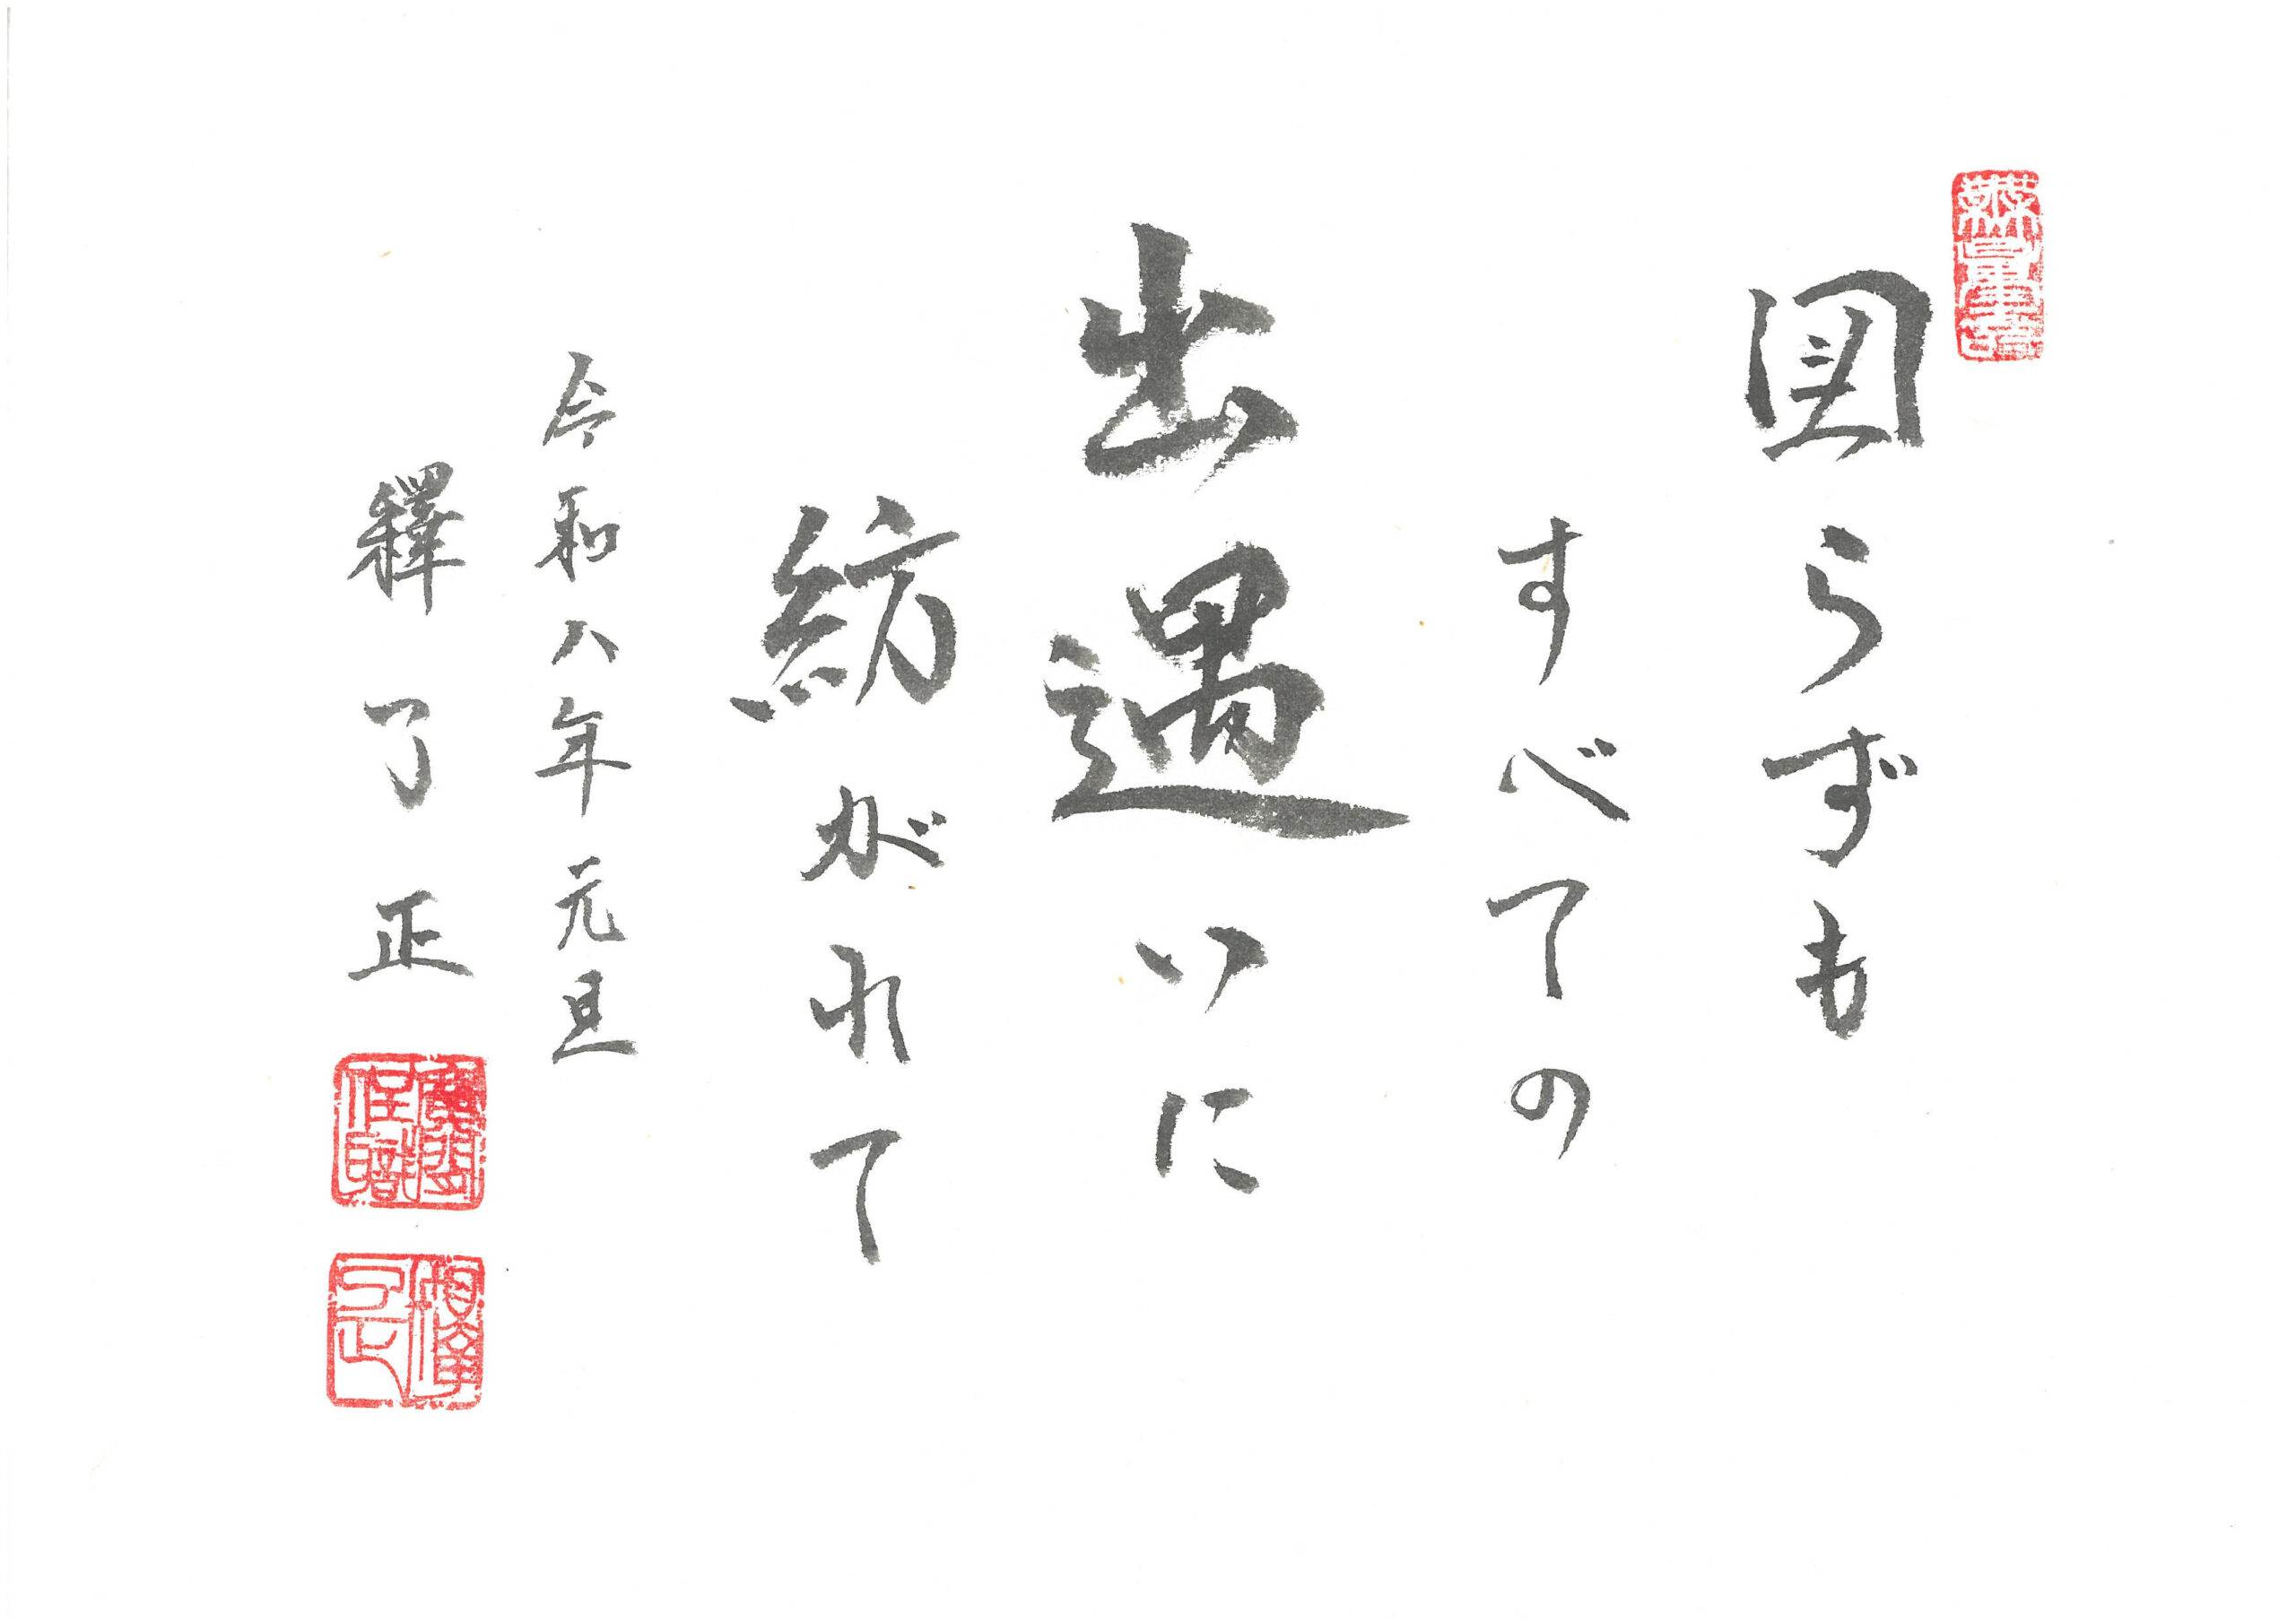 図らずも
すべての
出遇いに
紡がれて
令和八年元旦
釋了正